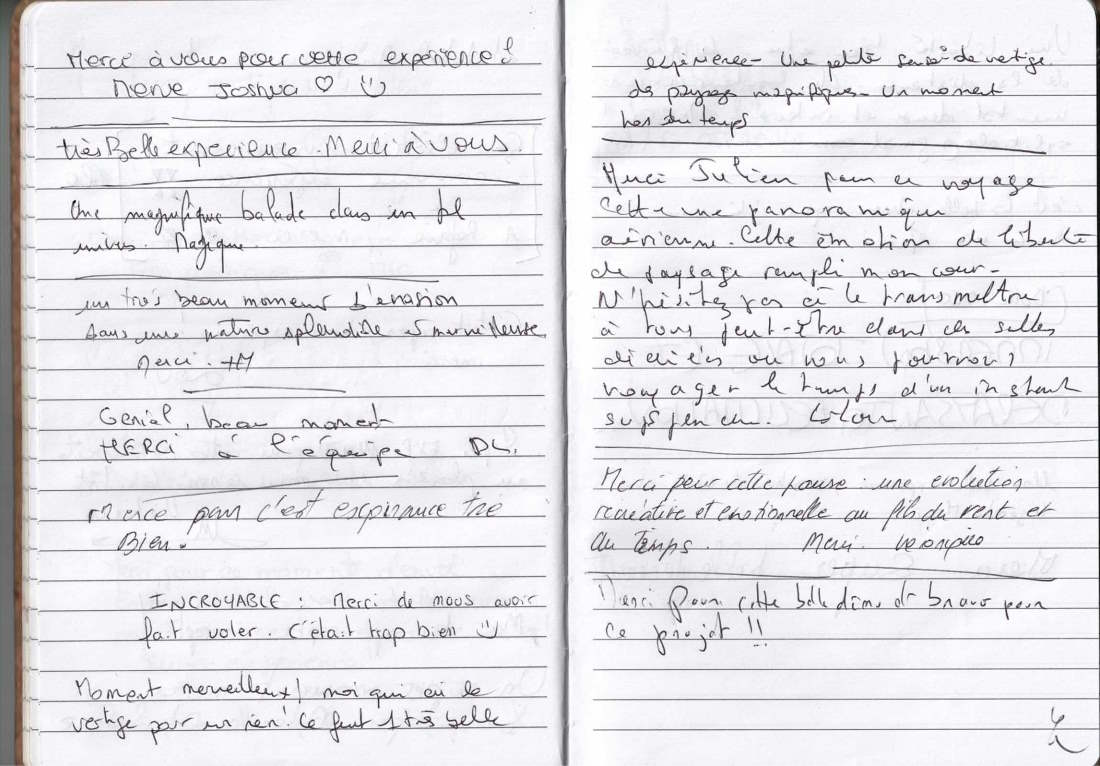 Merci à vous pour cette expérience !
Merve Joshua ♡ ☺
très Belle expérience. Merci à vous.
Une magnifique balade dans un bel
univers. Magique.
un très beau moment d'évasion
dans une nature splendide & merveilleuse
Merci.
Génial, beau moment
MERCI à l'équipe DL.
Merce pour c'est expirance tre
Bien.
INCROYABLE : Merci de nous avoir
fait voler. C'était trop bien ☺
Moment merveilleux ! moi qui ai le
vertige pour un rien ! Ce fut 1 très belle
expérience - Une petite de vertige.
des paysages magnifiques - Un moment
hors du temps
Merci Julien pour ce voyage
cette une panoramique
aérienne. Cette émotion de liberté
de paysage rempli mon cœur -
N'hésitez pas à le transmettre
à tous peut-être dans des salles
dédiées où nous pourrons
voyager le temps d'un instant
suspendu.
Merci pour cette pause : une évolution
récréative et émotionnelle au fil du vent et
du temps. Merci. Véronique
Merci pour cette belle démo et bravo pour
ce projet !!